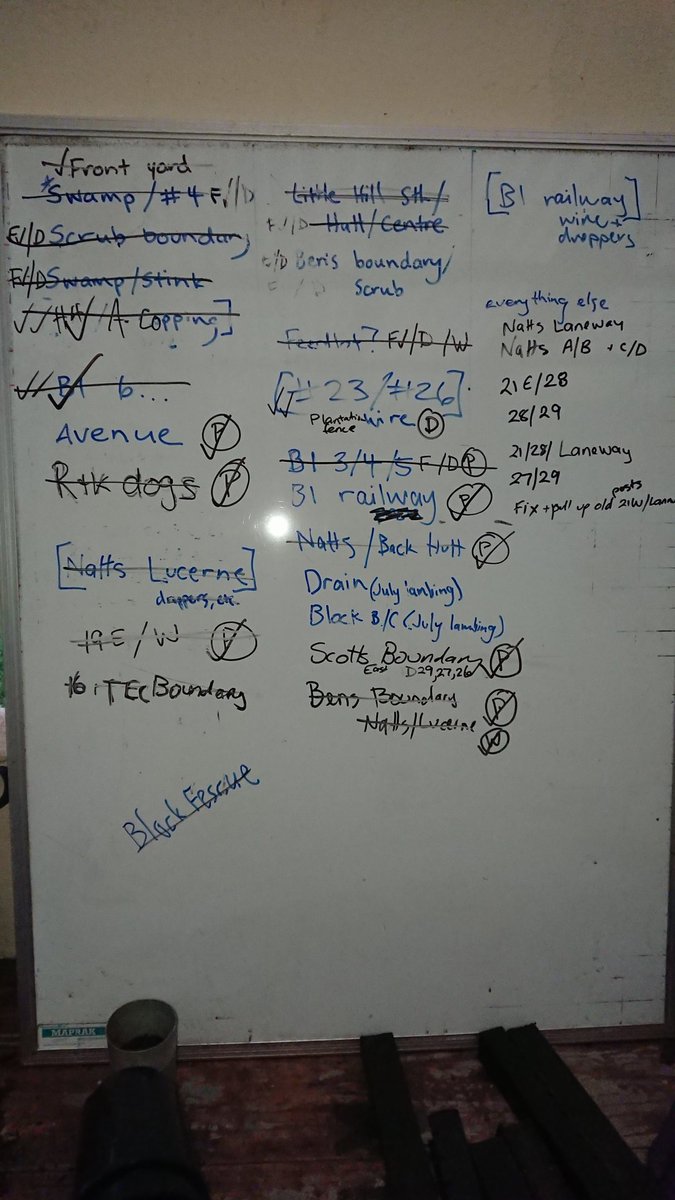 ✓Front yard
*Swamp/#4 F✓/D
F✓/D Scrub boundary
F✓/D Swamp/Stink
A. Copping]
✓✓ B1 6...
Avenue P
R+K dogs P
[Natts Lucerne]
droppers, etc.
19E/W P
TEC Boundary
Black Fescue
Little Hill Sth/
F✓/D Hutt/Centre
F/D Bens boundary/
F / D Scrub
Feedlot? F✓/D/W
[#23/#26]
✓✓ Plantation fence wire D
B1 3/4/5 F/D P
B1 railway P
Natts/Back Hutt P
Drain (July lambing)
Block B/C (July lambing)
Scotts Boundary P
East D29,27,26
Bens Boundary P
Natts/Lucerne W
[B1 railway]
wire +
droppers
everything else
Natts Laneway
Natts A/B + C/D
21E/28
28/29
21/28/Laneway
27/29
Fix + pull up old posts 21W/
MAPRAK